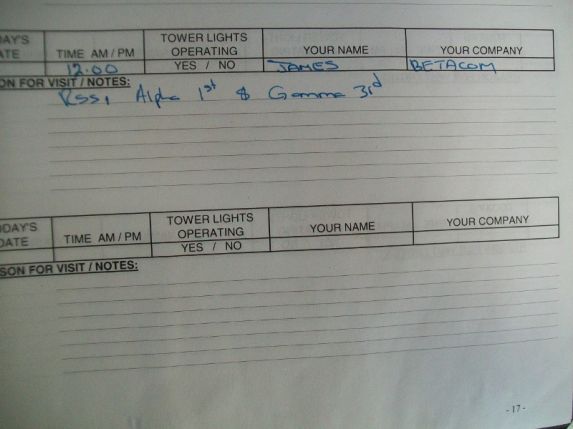 AY'S TIME AM / PM TOWER LIGHTS OPERATING YOUR NAME YOUR COMPANY
ATE 12.00 YES / NO JAMES BETACOM
ON FOR VISIT / NOTES:
RSSI Alpha 1st & Gamma 3rd
DAY'S DATE TIME AM / PM TOWER LIGHTS OPERATING YOUR NAME YOUR COMPANY
YES / NO
SON FOR VISIT / NOTES:
- 17 -